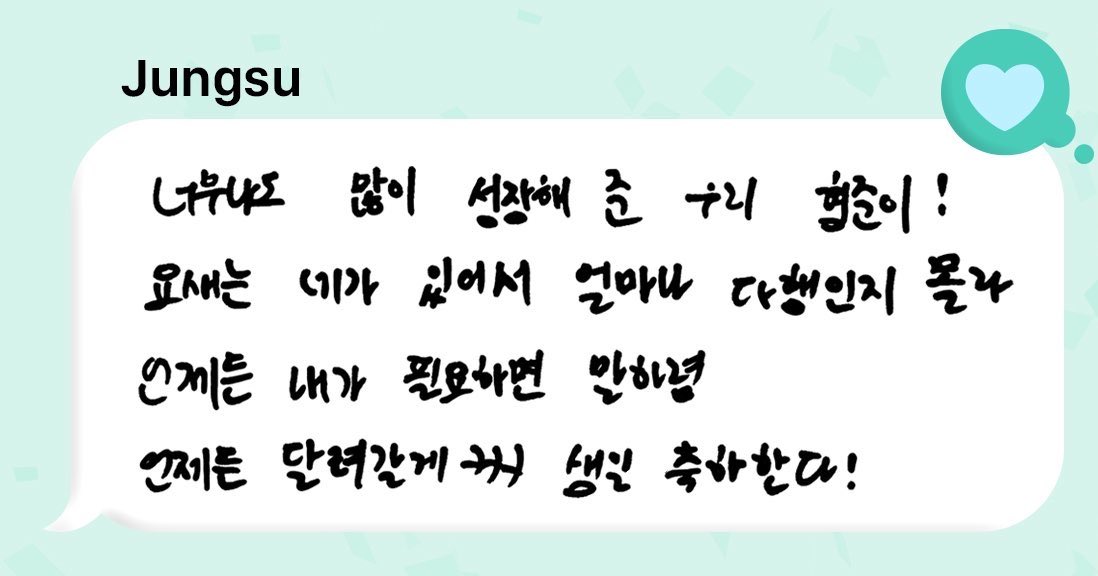 Jungsu
너무나도 많이 성장해 준 우리 형준이!
요새는 네가 있어서 얼마나 다행인지 몰라
언제든 내가 필요하면 말하렴
언제든 달려갈게 ㅋㅋㅋ 생일 축하한다!